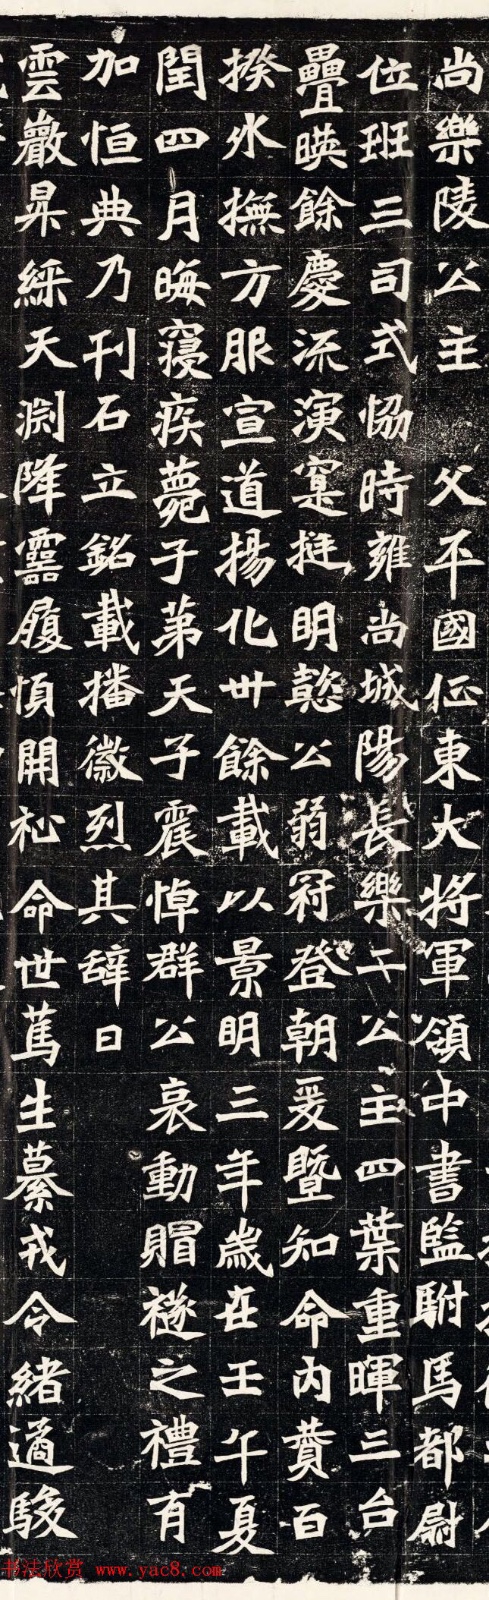 尚樂陵公主 父平國征東大將軍領中書監駙馬都尉
位班三司式協時雍尚城陽長樂二公主四葉重暉三台
疊暎餘慶流演寔挺明懿公弱冠登朝爰暨知命內贊百
揆外撫方服宣道揚化卅餘載以景明三年歲在壬午夏
閏四月晦寢疾薨于第天子震悼群公 哀動賵襚之禮有
加恒典乃刊石立銘載播徽烈其辭曰
雲巖昇綵天淵降靈履順開祉命世篤生纂戎令緒遹駿
书法欣赏 www.yac8.com